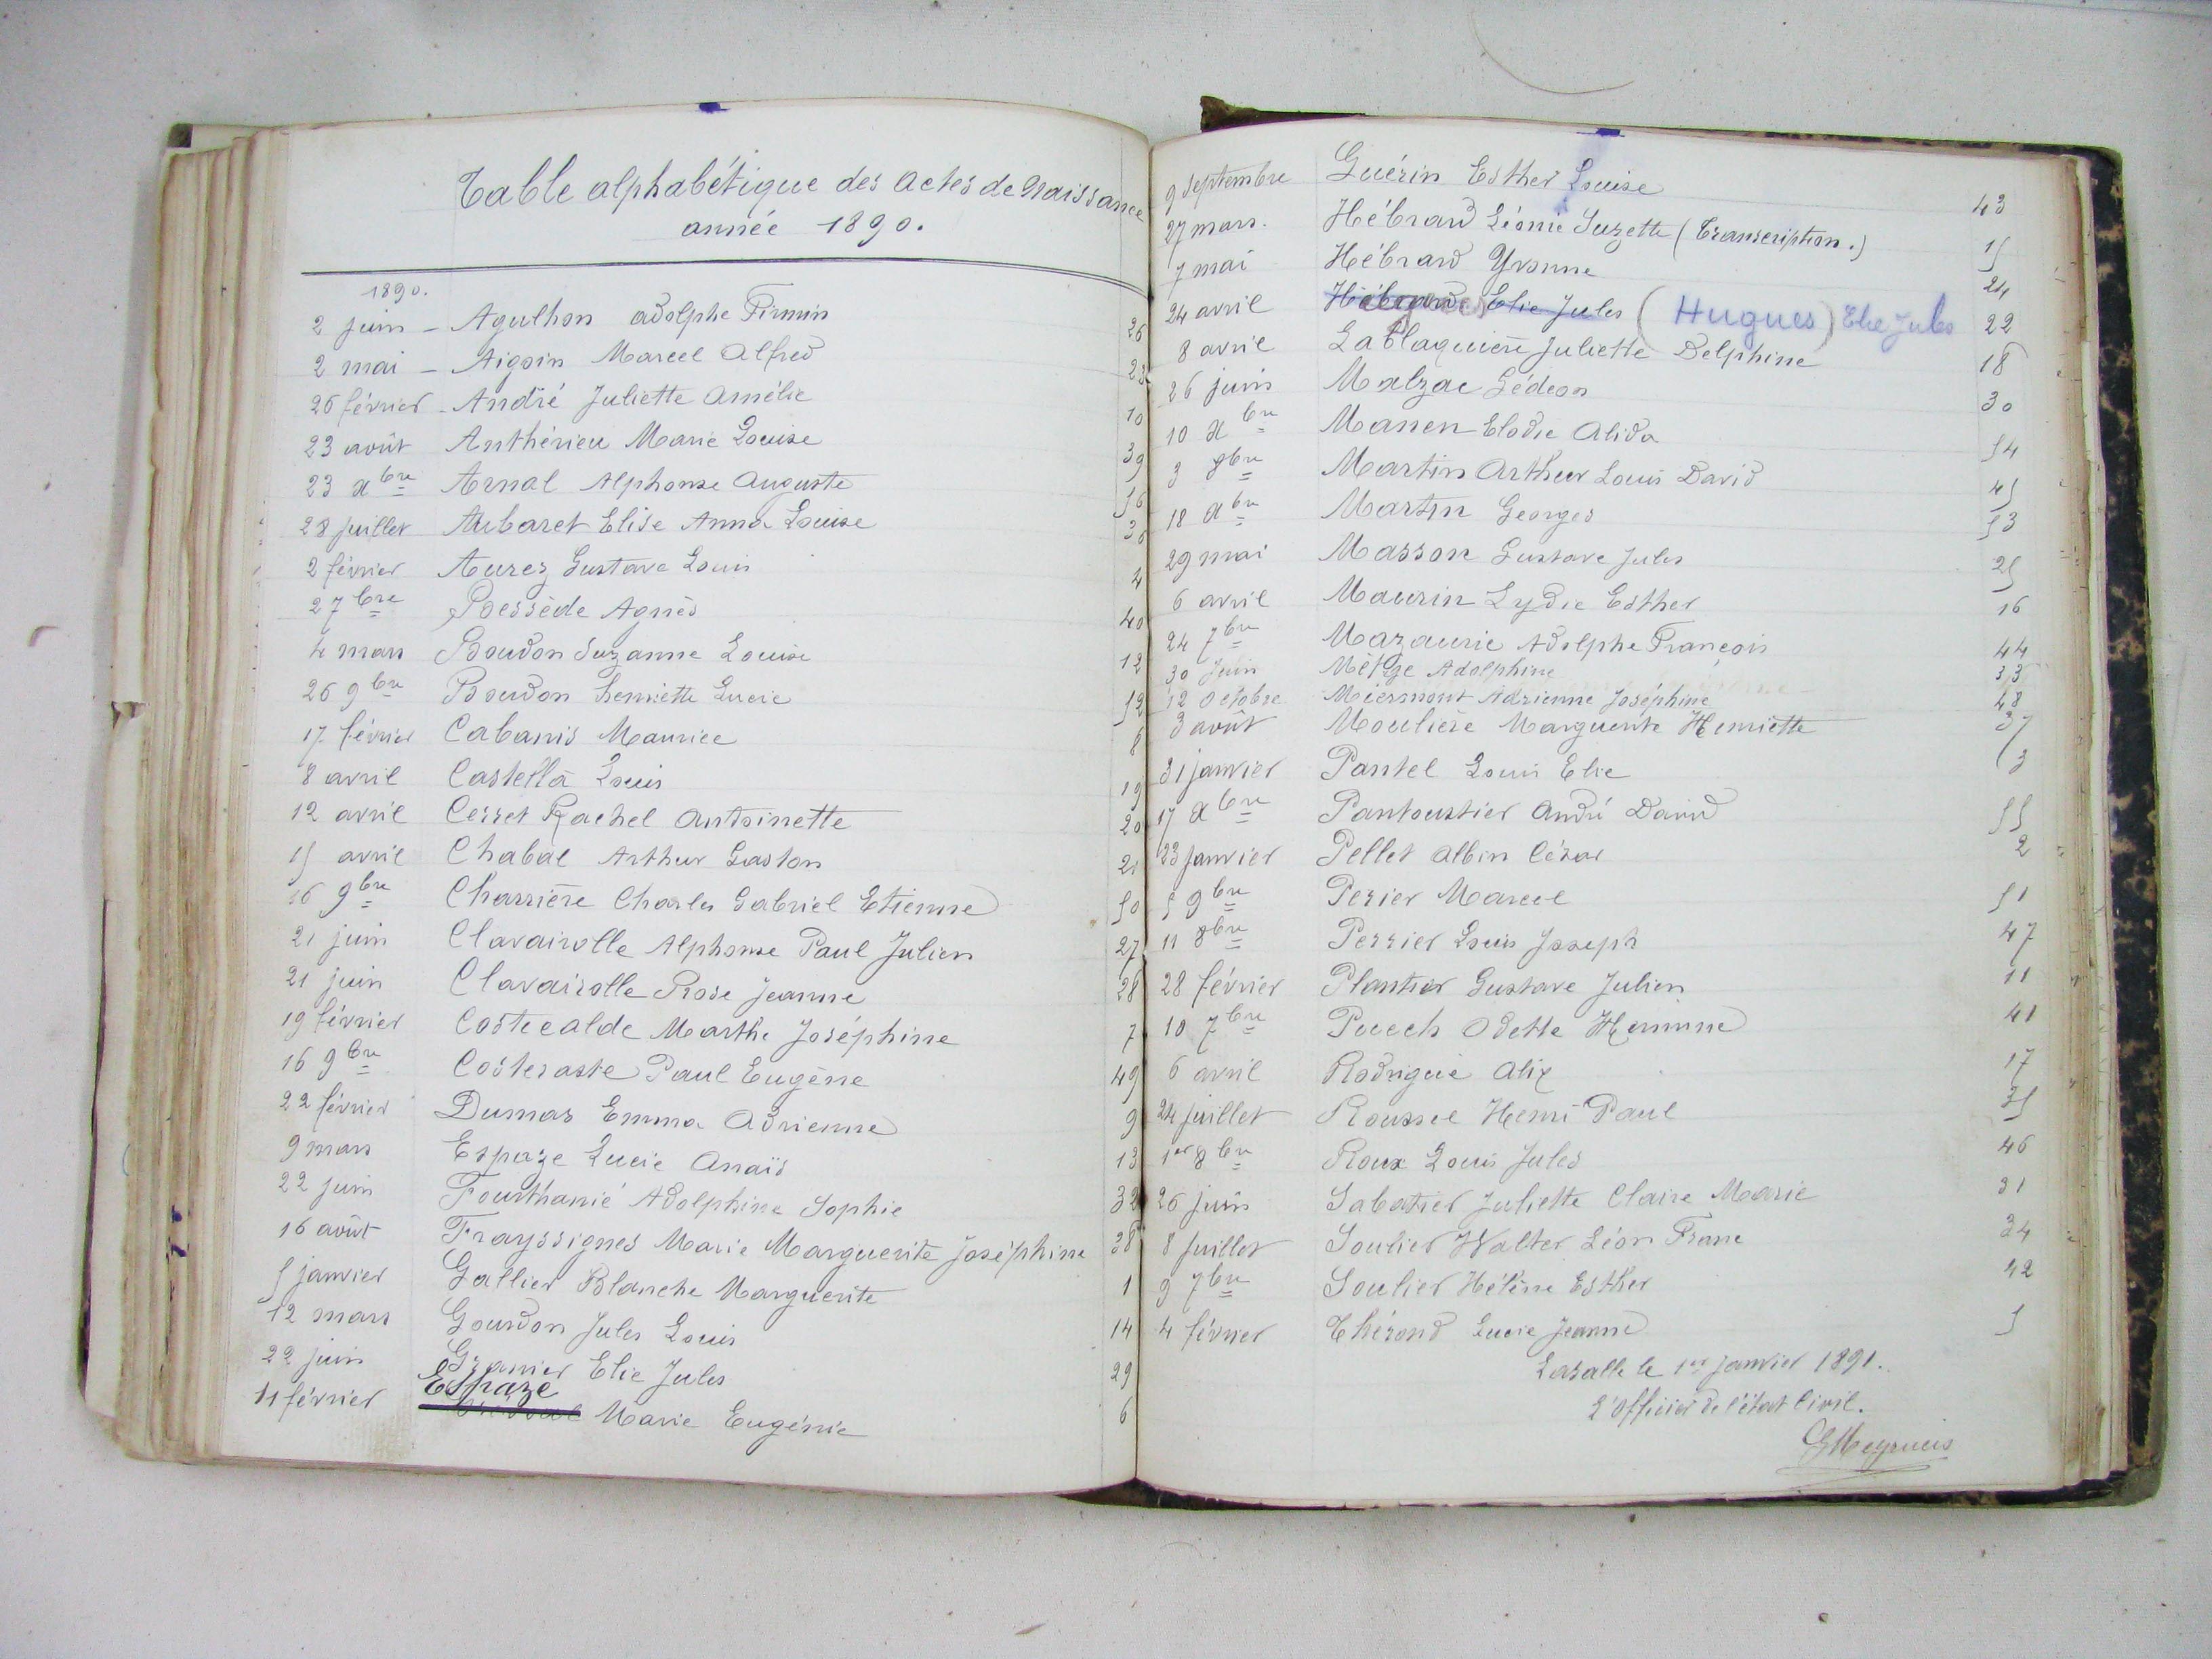 Table alphabétique des Actes de Naissance
année 1890.
1890.
2 juin - Agulhon adolphe Firmin 26
2 mai - Aigoin Marcel Alfred 23
26 février - André Juliette Amélie 10
23 août Anthérieu Marie Louise 39
23 xbre Arnal Alphonse Auguste 56
28 juillet Aubaret Elise Anna Louise 36
2 février Aurez Gustave Louis 4
2 7bre Bessède Agnès 40
4 mars Boudon Suzanne Louise 12
26 9bre Boudon henriette Lucie 52
17 février Cabanis Maurice 8
8 avril Castella Louis 19
12 avril Cerret Rachel Antoinette 20
15 avril Chabal Arthur Gaston 21
16 9bre Charrière Charles Gabriel Etienne 50
21 juin Clavairolle Alphonse Paul Julien 27
21 juin Clavairolle Rose Jeanne 28
19 février Costecalde Marthe Joséphine 7
16 9bre Costeraste Paul Eugène 49
22 février Dumas Emma Adrienne 9
9 mars Espaze Lucie Anaïs 13
22 juin Fousthanié Adolphine Sophie 32
16 août Frayssignes Marie Marguerite Joséphine 38
5 janvier Gallier Blanche Marguerite 1
12 mars Gourdon Jules Louis 14
22 juin Granier Elie Jules 29
Espaze
11 février Marie Eugénie 6
9 septembre Guérin Esther Louise 43
27 mars. Hébrard Léonie Suzette (Transcription.) 15
7 mai Hébrard Yvonne 24
24 avril Hébrard Elie Jules (Hugues) Elie Jules 22
8 avril Lablaquière Juliette Delphine 18
26 juin Malzac Gédéon 30
10 xbre Manen Elodie Alida 54
3 8bre Martin Arthur Louis David 45
18 xbre Martin Georges 53
29 mai Masson Gustave Jules 25
6 avril Maurin Lydie Esther 16
24 7bre Mazauric Adolphe François 44
30 Juin Mètge Adolphine 33
12 Octobre Miermont Adrienne Joséphine 48
3 août Moulière Marguerite Henriette 37
31 janvier Pantel Louis Elie 3
17 xbre Pantoustier André David 55
23 janvier Pellet Albin César 2
5 9bre Perier Marcel 51
11 8bre Perrier Louis Joseph 47
28 février Plantier Gustave Julien 11
10 7bre Puech Odette Hermine 41
6 avril Rodrigue Alix 17
24 juillet Roussel Henri Paul 35
1er 8bre Roux Louis Jules 46
26 juin Sabatier Juliette Claire Marie 31
8 juillet Soulier Walter Léon Franc 34
9 7bre Soulier Hélène Esther 42
4 février Thérond Lucie Jeanne 5
Lasalle le 1er janvier 1891.
L'officier de l'état Civil.